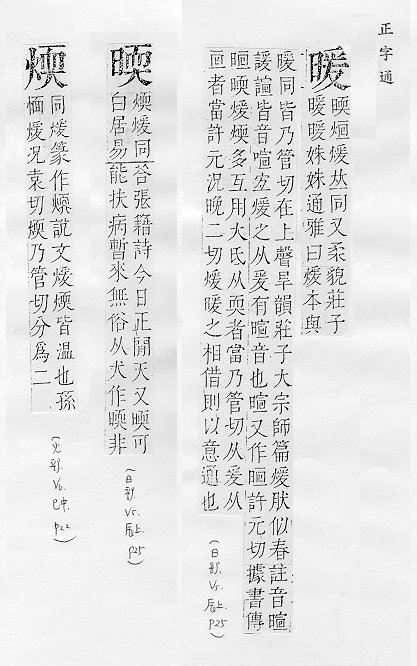 正字通
暖
㬉煗煖𠀤同又柔貌莊子
暖暖姝姝通雅曰煖本與
暖同皆乃管切在上聲旱韻莊子大宗師篇煖肰似春註音暄
諼諠皆音喧㝎煖之从爰有暄音也暄又作㫛許元切據書傳
㫛㬉煖煗多互用大氐从耎者當乃管切从爰从
亘者當許元況晚二切煖暖之相借則以意通也
(日部. V5. 辰上. P25)
㬉
煗煖同荅張籍詩今日正閒天又㬉可
白居易能扶病暫來無俗从犬作㬉非
(日部. V5. 辰上. P25)
煗
同煖篆作煗說文煖煗皆温也孫
愐煖况袁切煗乃管切分爲二
(火部. V6. 巳中. P22)